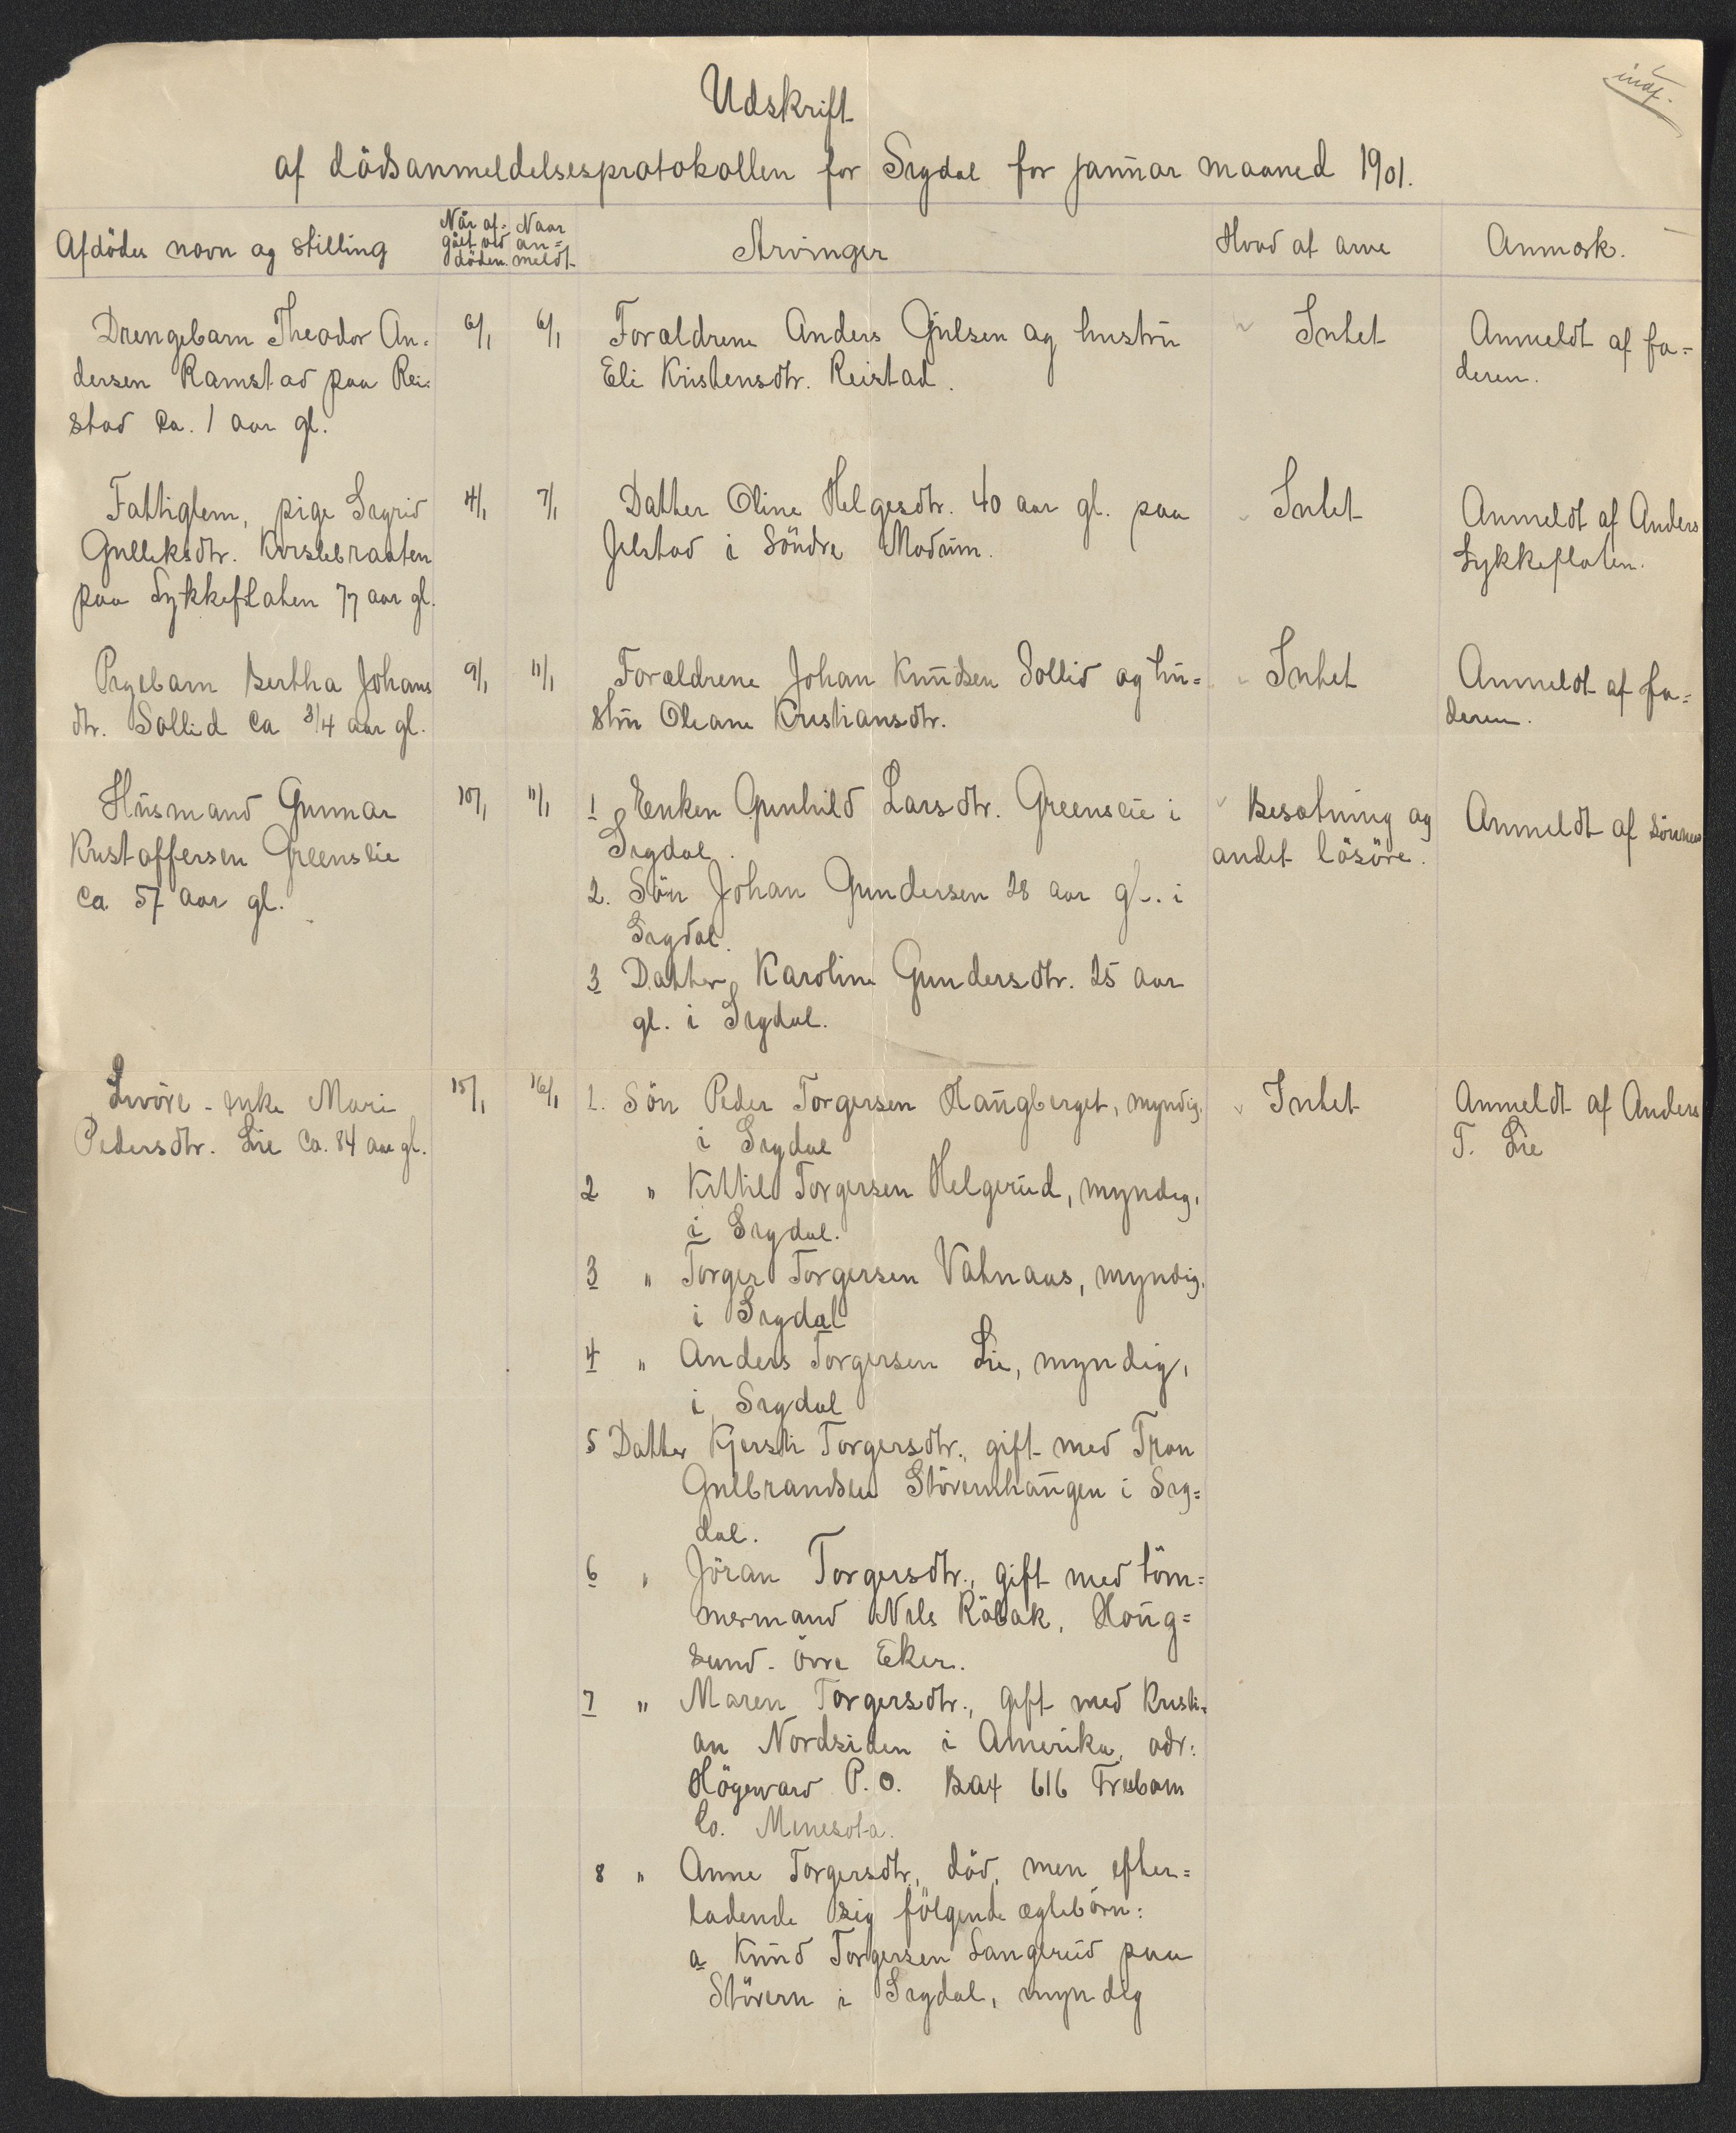 indf.
Udskrift
af dödsanmeldelsesprotokollen for Sigdal for januar maaned 1901.
Afdödes navn og stilling
Når af-
gået ved
döden.
Naar
an=
meldt
Arvinger
Hvad at arve
Anmærk.
Drengebarn Theodor An-
dersen Ramstad paa Rei-
stad ca. 1 aar gl.
6/1
6/1
Forældrene Anders Gulsen og hustru
Eli Kristensdtr. Reistad.
Intet
Anmeldt af fa=
deren.
Fattiglem, pige Sigrid
Gulleksdtr. Korslebraaten
paa Lykkeflaten 77 aar gl.
4/1
7/1
Datter Oline Helgesdtr. 40 aar gl. paa
Jelstad i Söndre Modum.
Intet
Anmeldt af Anders
Lykkeflaten.
Pigebarn Bertha Johans
dtr. Sollid ca 3/4 aar gl.
9/1
11/1
Forældrene Johan Knudsen Sollid og hu=
stru Oleane Kristiansdtr.
Intet
Anmeldt af fa=
deren.
Husmand Gunnar
Kristoffersen Greenslie
ca. 57 aar gl.
10/1
11/1
1 Enken Gunhild Larsdtr. Greenslie i
Sigdal.
2. Sön Johan Gundersen 28 aar gl. i
Sigdal.
3 Datter Karoline Gundersdtr. 25 aar
gl. i Sigdal.
Besætning og
andet lösöre.
Anmeldt af sönnen
Livöre-enke Mari
Pedersdtr. Lie ca. 84 aar gl.
15/1
16/1
1. Sön Peder Torgersen Haugberget, myndig,
i Sigdal
2 " Kittil Torgersen Helgerud, myndig,
i Sigdal.
3 " Torger Torgersen Vatnaas, myndig,
i Sigdal
4 " Anders Torgersen Lie, myndig,
i Sigdal
5 Datter Kjersti Torgersdtr., gift med Tron
Gulbrandsen Störenhaugen i Sig=
dal.
6 " Jöran Torgersdtr., gift med töm=
mermand Nils Röbak, Houg=
sund - övre Eker.
7 " Maren Torgersdtr., gift med Kristi=
an Nordsiden i Amerika, adr:
Högeward P.O. Bax 616 Freeborn
Co. Minesota.
8 " Anne Torgersdtr., död, men efter=
ladende sig fölgende ægtebörn:
a Knud Torgersen Langerud paa
Störern i Sigdal, myndig
Intet
Anmeldt af Anders
T. Lie